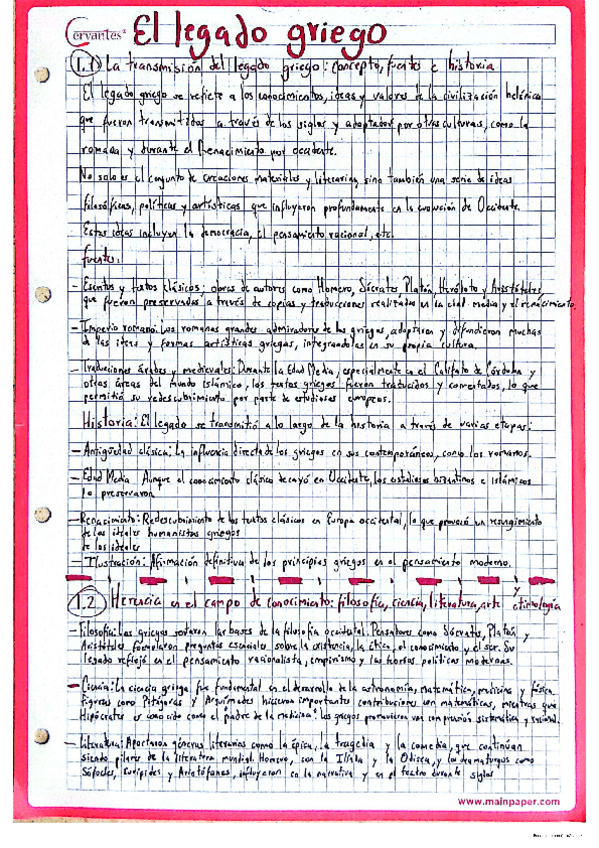 Cervantes El legado griego
1.1 La transmisión del legado griego: concepto, fuentes e historia
El legado griego se refiere a los conocimientos, ideas y valores de la civilización helénica
que fueron transmitidos a través de los siglos y adoptados por otras culturas, como la
romana y durante el Renacimiento por occidente.
No solo es el conjunto de creaciones materiales y literarias, sino también una serie de ideas
filosóficas, políticas y artísticas que influyeron profundamente en la evolución de Occidente.
Estas ideas incluyen la democracia, el pensamiento racional, etc.
fuentes:
- Escritos y textos clásicos: obras de autores como Homero, Sócrates, Platón, Heródoto y Aristóteles,
que fueron preservadas a través de copias y traducciones realizadas en la edad media y el renacimiento.
- Imperio romano: Los romanos grandes admiradores de los griegos, adoptaron y difundieron muchas
de las ideas y formas artísticas griegas, integrandolas en su propia cultura.
- Traducciones árabes y medievales: Durante la Edad Media, especialmente en el Califato de Córdoba y
otras áreas del mundo islámico, los textos griegos fueron traducidos y comentados, lo que
permitió su redescubrimiento por parte de estudiosos europeos.
Historia: El legado se transmitió a lo largo de la historia a través de varias etapas:
- Antigüedad clásica: La influencia directa de los griegos en sus contemporáneos, como los romanos.
- Edad Media: Aunque el conocimiento clásico decayó en Occidente, los estudiosos bizantinos e islámicos
lo preservaron
- Renacimiento: Redescubrimiento de los textos clásicos en Europa occidental, lo que provocó un resurgimiento
de los ideales humanistas griegos
de los ideales
- Ilustración: Afirmación definitiva de los principios griegos en el pensamiento moderno.
1.2 Herencia en el campo de conocimiento: filosofía, ciencia, literatura, arte y etimología
- Filosofía: Los griegos sentaron las bases de la filosofía occidental. Pensadores como Sócrates, Platón y
Aristóteles formularon preguntas esenciales sobre la existencia, la ética, el conocimiento y el ser. Su
legado reflejó en el pensamiento racionalista, empirismo y las teorías políticas modernas.
- Ciencia: La ciencia griega fue fundamental en el desarrollo de la astronomía, matemática, medicina y física.
Figuras como Pitágoras y Arquímedes hicieron importantes contribuciones en matemáticas, mientras que
Hipócrates es conocido como el padre de la medicina. Los griegos promovieron una comprensión sistemática y racional.
- Literatura: Aportaron géneros literarios como la épica, la tragedia y la comedia, que continúan
siendo pilares de la literatura mundial. Homero, con la Ilíada y la Odisea, y los dramaturgos como
Sófocles, Eurípides y Aristófanes, influyeron en la narrativa y en el teatro durante siglos
www.mainpaper.com